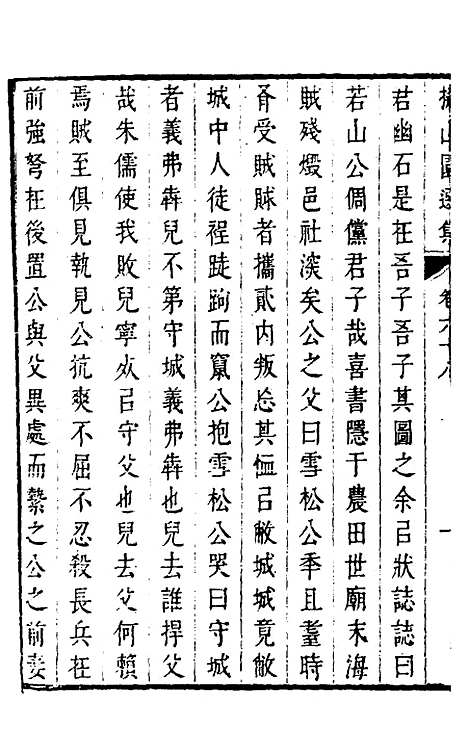 擬山園選集 卷六十八 一
君幽石是在吾子吾子其圖之余㠯狀誌誌曰
若山公倜儻君子哉喜書隱于農田世廟末海
賊殘燬邑社湥矣公之父曰雪松公秊且耋時
胥受賊賕者攜貳內叛忩其恤㠯敝城城竟敝
城中人徒裎踕跔而竄公抱雪松公哭曰守城
者義弗犇兒不第守城義弗犇也兒去誰捍父
哉朱儒使我敗兒寧㱔㠯守父也兒去父何賴
焉賊至俱見執見公抗爽不屈不忍殺長兵在
前強弩在後置公與父異處而縶之公之前妻